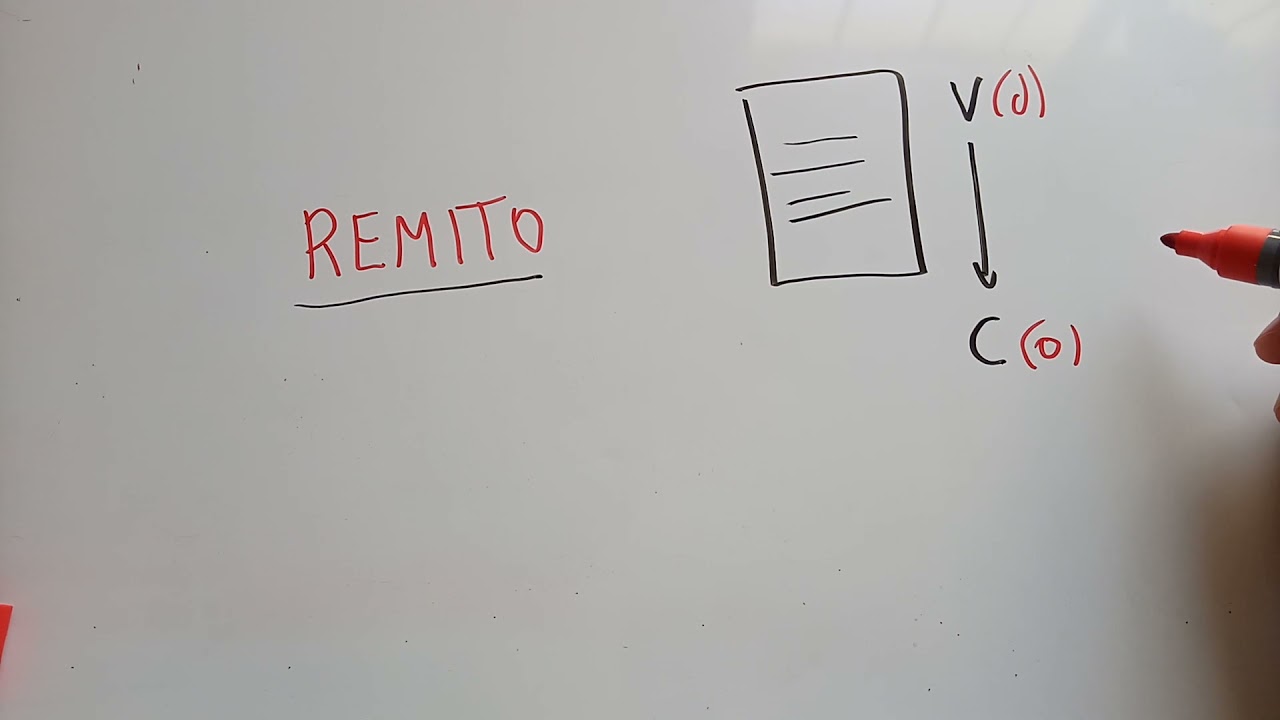 REMITO
V (d)
C (o)